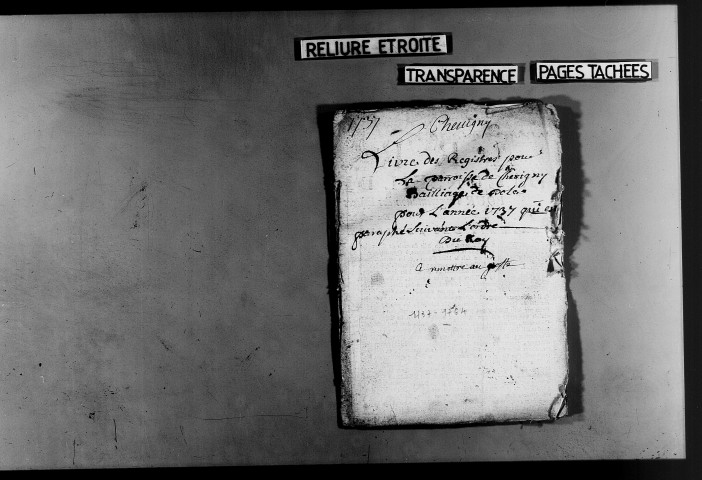 RELIURE ETROITE
TRANSPARENCE
PAGES TACHEES
1737
Chevigny
Livre des Registres pour
La parroisse de Chevigny
Bailliage de Dole
pour L'année 1737 qui est
paraphé Suivant L'ordre
Du Roy
a remettre au greffe
1737-1744